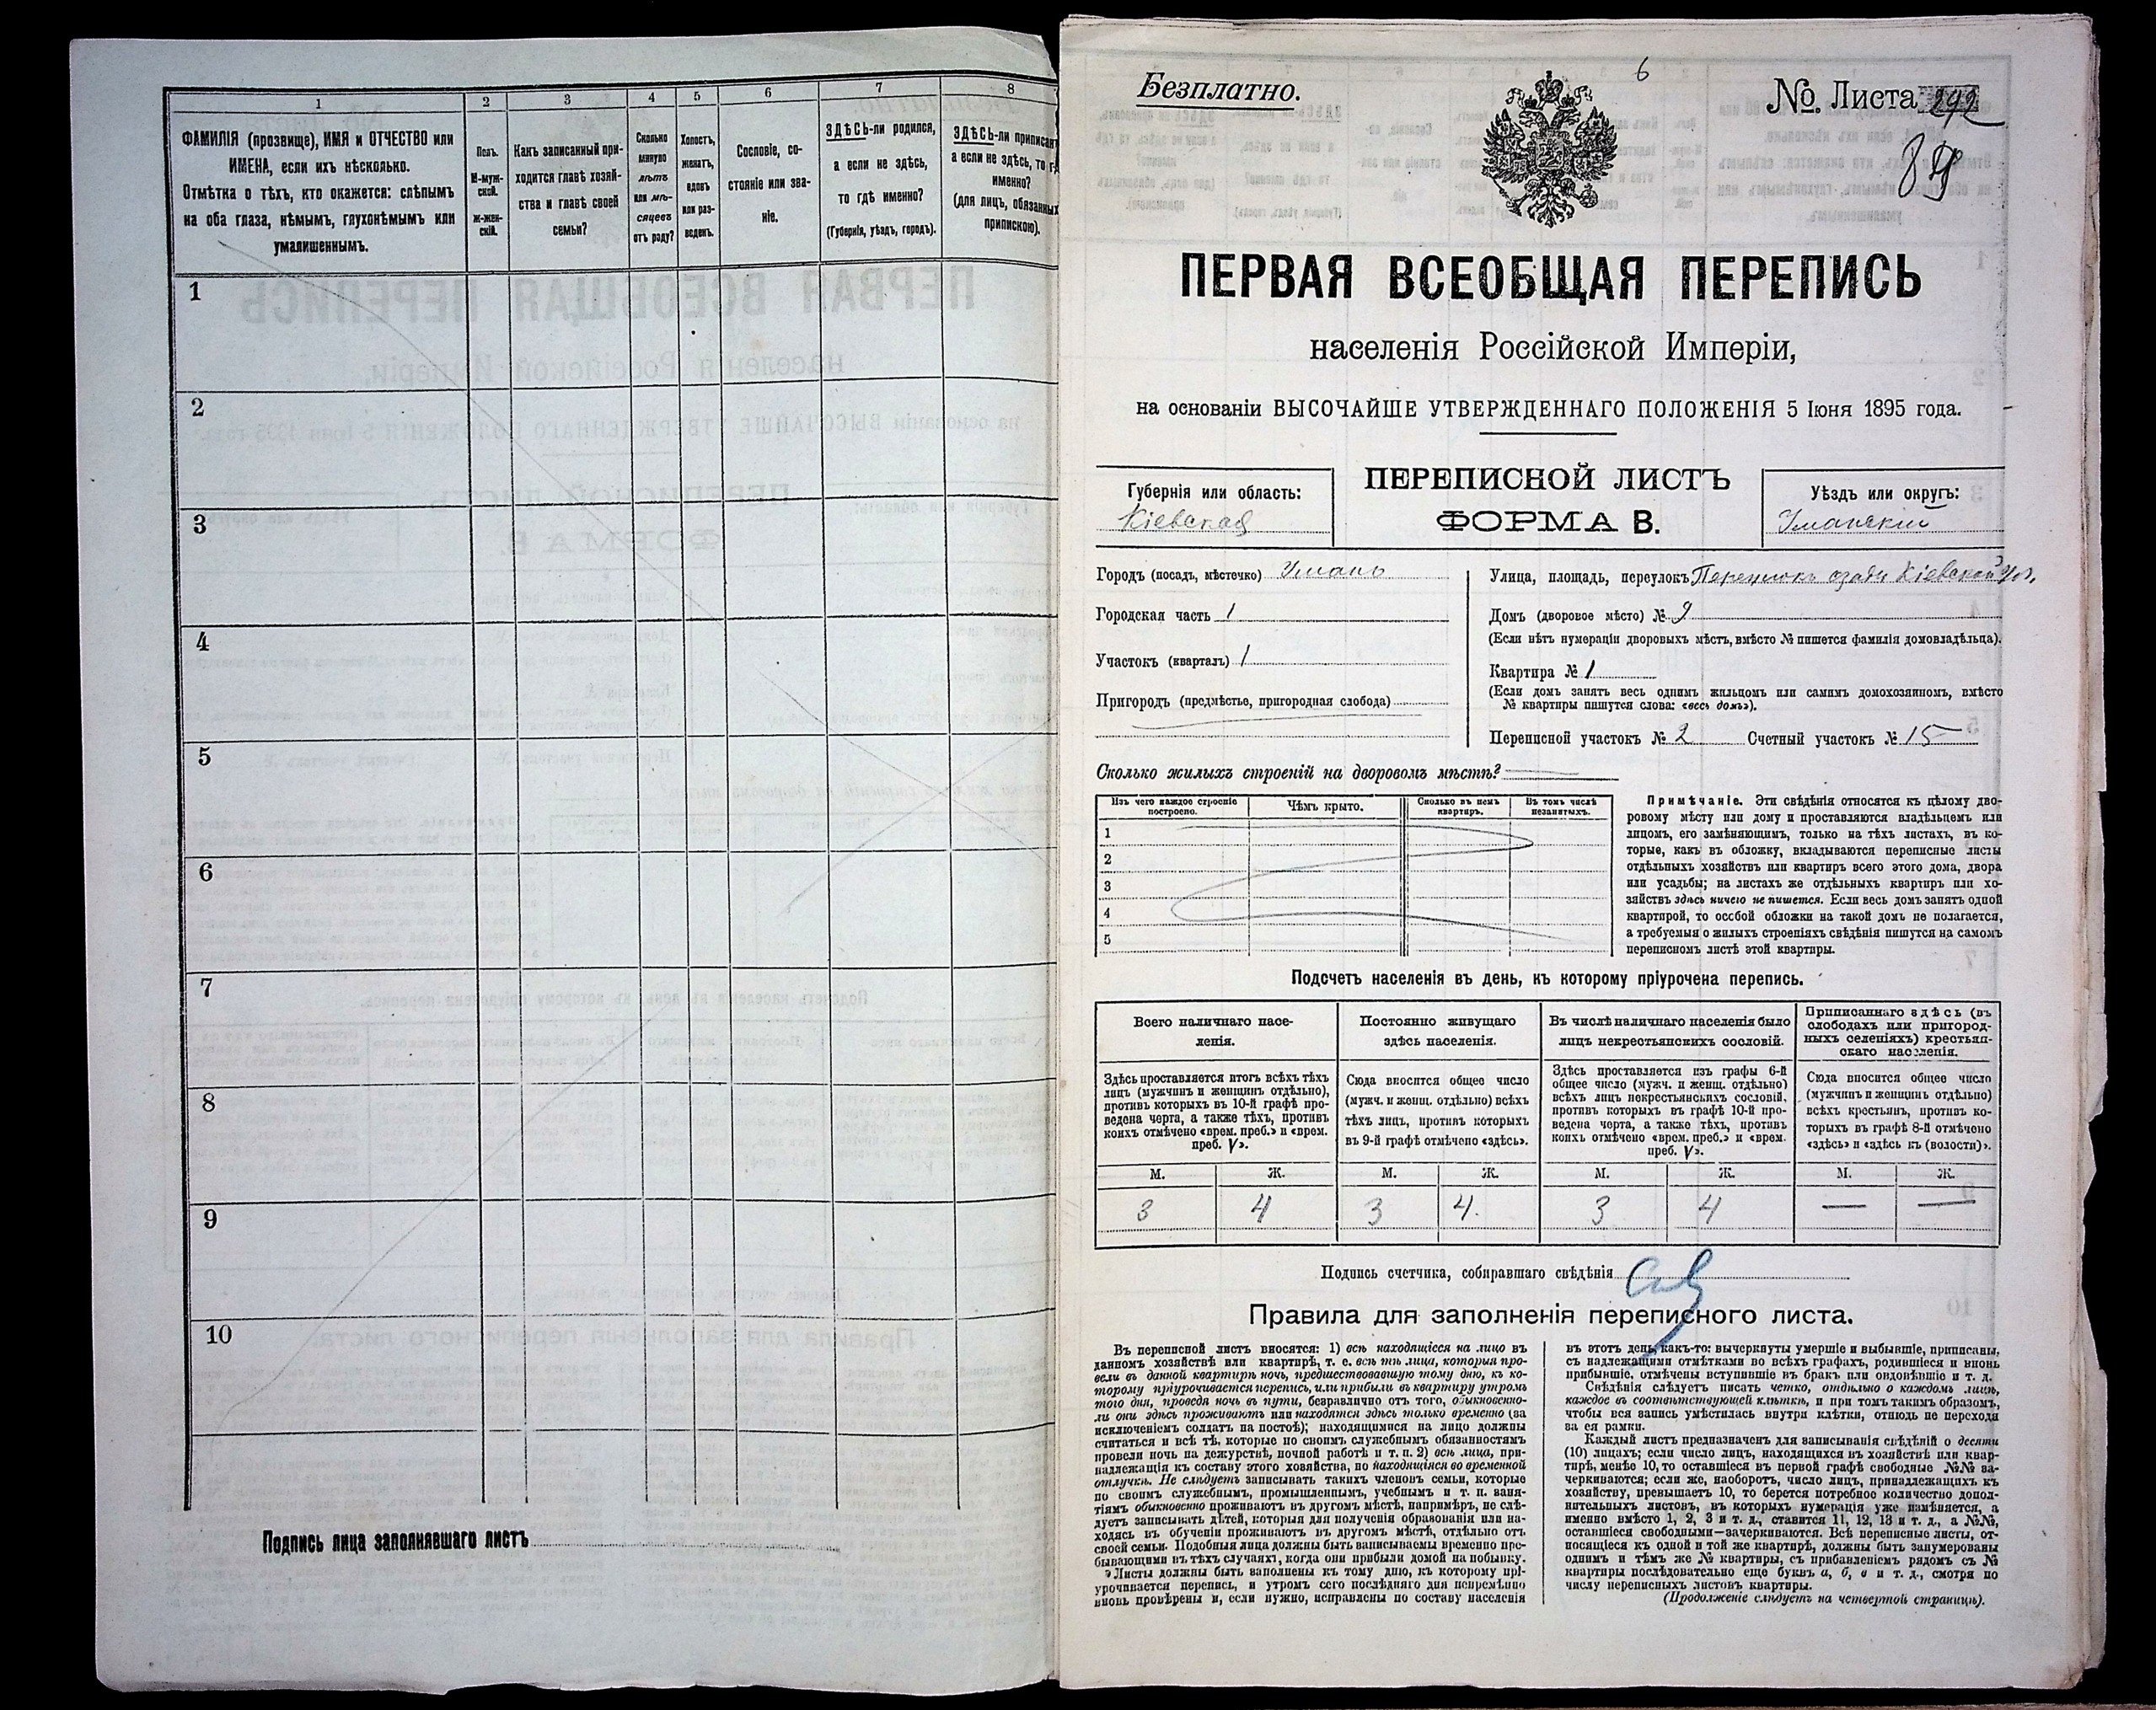 1
2
3
4
5
6
7
8
ФАМИЛІЯ (прозвище), ИМЯ и ОТЧЕСТВО или
ИМЕНА, если ихъ нѣсколько.
Отмѣтка о тѣхъ, кто окажется: слѣпымъ
на оба глаза, нѣмымъ, глухонѣмымъ или
умалишеннымъ.
Полъ.
М-муж-
ской.
Ж-жен-
скій.
Какъ записанный при-
ходится главѣ хозяй-
ства и главѣ своей
семьи?
Сколько
минуло
лѣтъ
или мѣ-
сяцевъ
отъ роду?
Холостъ,
женатъ,
вдовъ
или раз-
веденъ.
Сословіе, со-
стояніе или зва-
ніе.
ЗДѢСЬ-ли родился,
а если не здѣсь,
то гдѣ именно?
(Губернія, уѣздъ, городъ).
ЗДѢСЬ-ли приписанъ
а если не здѣсь, то
именно?
(для лицъ, обязанныхъ
припискою).
1
2
3
4
5
6
7
8
9
10
Подпись лица заполнявшаго листъ
Безплатно.
6
№ Листа 292
89
ПЕРВАЯ ВСЕОБЩАЯ ПЕРЕПИСЬ
населенія Россійской Имперіи,
на основаніи ВЫСОЧАЙШЕ УТВЕРЖДЕННАГО ПОЛОЖЕНІЯ 5 Іюня 1895 года.
Губернія или область:
Кіевская
ПЕРЕПИСНОЙ ЛИСТЪ
ФОРМА В.
Уѣздъ или округъ:
Уманскій
Городъ (посадъ, мѣстечко) Умань
Городская часть 1
Участокъ (кварталъ) 1
Пригородъ (предмѣстье, пригородная слобода)
Улица, площадь, переулокъ Кіевской ул.
Домъ (дворовое мѣсто) № 9
(Если нѣтъ нумераціи дворовыхъ мѣстъ, вмѣсто № пишется фамилія домовладѣльца).
Квартира № 1
(Если домъ занятъ весь однимъ жильцомъ или самимъ домохозяиномъ, вмѣсто
№ квартиры пишутся слова: «весь домъ»).
Переписной участокъ № 2 Счетный участокъ № 15
Сколько жилыхъ строеній на дворовомъ мѣстѣ?
Изъ чего каждое строеніе
построено.
Чѣмъ крыто.
Сколько въ немъ
квартиръ.
Въ томъ числѣ
незанятыхъ.
1
2
3
4
5
Примѣчаніе. Эти свѣдѣнія относятся къ цѣлому дво-
ровому мѣсту или дому и проставляются владѣльцемъ или
лицомъ, его замѣняющимъ, только на тѣхъ листахъ, въ ко-
торые, какъ въ обложку, вкладываются переписные листы
отдѣльныхъ хозяйствъ или квартиръ всего этого дома, двора
или усадьбы; на листахъ же отдѣльныхъ квартиръ или хо-
зяйствъ здѣсь ничего не пишется. Если весь домъ занятъ одной
квартирой, то особой обложки на такой домъ не полагается,
а требуемыя о жилыхъ строеніяхъ свѣдѣнія пишутся на самомъ
переписномъ листѣ этой квартиры.
Подсчетъ населенія въ день, къ которому пріурочена перепись.
Всего наличнаго насе-
ленія.
Постоянно живущаго
здѣсь населенія.
Въ числѣ наличнаго населенія было
лицъ некрестьянскихъ сословій.
Приписаннаго здѣсь (въ
слободахъ или пригород-
ныхъ селеніяхъ) крестьян-
скаго населенія.
Здѣсь проставляется итогъ всѣхъ тѣхъ
лицъ (мужчинъ и женщинъ отдѣльно),
противъ которыхъ въ 10-й графѣ про-
ведена черта, а также тѣхъ, противъ
коихъ отмѣчено «врем. преб.» и «врем.
преб. V».
Сюда вносится общее число
(мужч. и женщ. отдѣльно) всѣхъ
тѣхъ лицъ, противъ которыхъ
въ 9-й графѣ отмѣчено «здѣсь».
Здѣсь проставляется изъ графы 6-й
общее число (мужч. и женщ. отдѣльно)
всѣхъ лицъ некрестьянскихъ сословій,
противъ которыхъ въ графѣ 10-й про-
ведена черта, а также тѣхъ, противъ
коихъ отмѣчено «врем. преб.» и «врем.
преб. V».
Сюда вносится общее число
(мужчинъ и женщинъ отдѣльно)
всѣхъ крестьянъ, противъ ко-
торыхъ въ графѣ 8-й отмѣчено
«здѣсь» и «здѣсь къ (волости)».
М. Ж. М. Ж. М. Ж. М. Ж.
3 4 3 4. 3 4 — —
Подпись счетчика, собиравшаго свѣдѣнія
Правила для заполненія переписного листа.
Въ переписной листъ вносятся: 1) всѣ находящіеся на лицо въ
данномъ хозяйствѣ или квартирѣ, т. е. всѣ тѣ лица, которыя про-
вели въ данной квартирѣ ночь, предшествовавшую тому дню, къ ко-
торому пріурочивается перепись, или прибыли въ квартиру утромъ
того дня, проведя ночь въ пути, безразлично отъ того, обыкновенно-
ли они здѣсь проживаютъ или находятся здѣсь только временно (за
исключеніемъ солдатъ на постоѣ); находящимися на лицо должны
считаться и всѣ тѣ, которые по своимъ служебнымъ обязанностямъ
провели ночь на дежурствѣ, ночной работѣ и т. п. 2) всѣ лица, при-
надлежащія къ составу этого хозяйства, но находящіяся во временной
отлучкѣ. Не слѣдуетъ записывать такихъ членовъ семьи, которые
по своимъ служебнымъ, промышленнымъ, учебнымъ и т. п. заня-
тіямъ обыкновенно проживаютъ въ другомъ мѣстѣ, напримѣръ, не слѣ-
дуетъ записывать дѣтей, которыя для полученія образованія или на-
ходясь въ обученіи проживаютъ въ другомъ мѣстѣ, отдѣльно отъ
своей семьи. Подобныя лица должны быть записываемы временно пре-
бывающими въ тѣхъ случаяхъ, когда они прибыли домой на побывку.
Листы должны быть заполнены къ тому дню, къ которому прі-
урочивается перепись, и утромъ сего послѣдняго дня непремѣнно
вновь провѣрены и, если нужно, исправлены по составу населенія
въ этотъ день, какъ-то: вычеркнуты умершіе и выбывшіе, приписаны,
съ надлежащими отмѣтками во всѣхъ графахъ, родившіеся и вновь
прибывшіе, отмѣчены вступившіе въ бракъ или овдовѣвшіе и т. д.
Свѣдѣнія слѣдуетъ писать четко, отдѣльно о каждомъ лицѣ,
каждое въ соотвѣтствующей клѣткѣ, и при томъ такимъ образомъ,
чтобы вся запись умѣстилась внутри клѣтки, отнюдь не переходя
за ея рамки.
Каждый листъ предназначенъ для записыванія свѣдѣній о десяти
(10) лицахъ; если число лицъ, находящихся въ хозяйствѣ или квар-
тирѣ, менѣе 10, то оставшіеся въ первой графѣ свободные №№ за-
черкиваются; если же, наоборотъ, число лицъ, принадлежащихъ къ
хозяйству, превышаетъ 10, то берется потребное количество допол-
нительныхъ листовъ, въ которыхъ нумерація уже измѣняется, а
именно вмѣсто 1, 2, 3 и т. д., ставится 11, 12, 13 и т. д., а №№,
оставшіеся свободными—зачеркиваются. Всѣ переписные листы, от-
носящіеся къ одной и той же квартирѣ, должны быть занумерованы
однимъ и тѣмъ же № квартиры, съ прибавленіемъ рядомъ съ №
квартиры послѣдовательно еще буквъ а, б, в и т. д., смотря по
числу переписныхъ листовъ квартиры.
(Продолженіе слѣдуетъ на четвертой страницѣ).